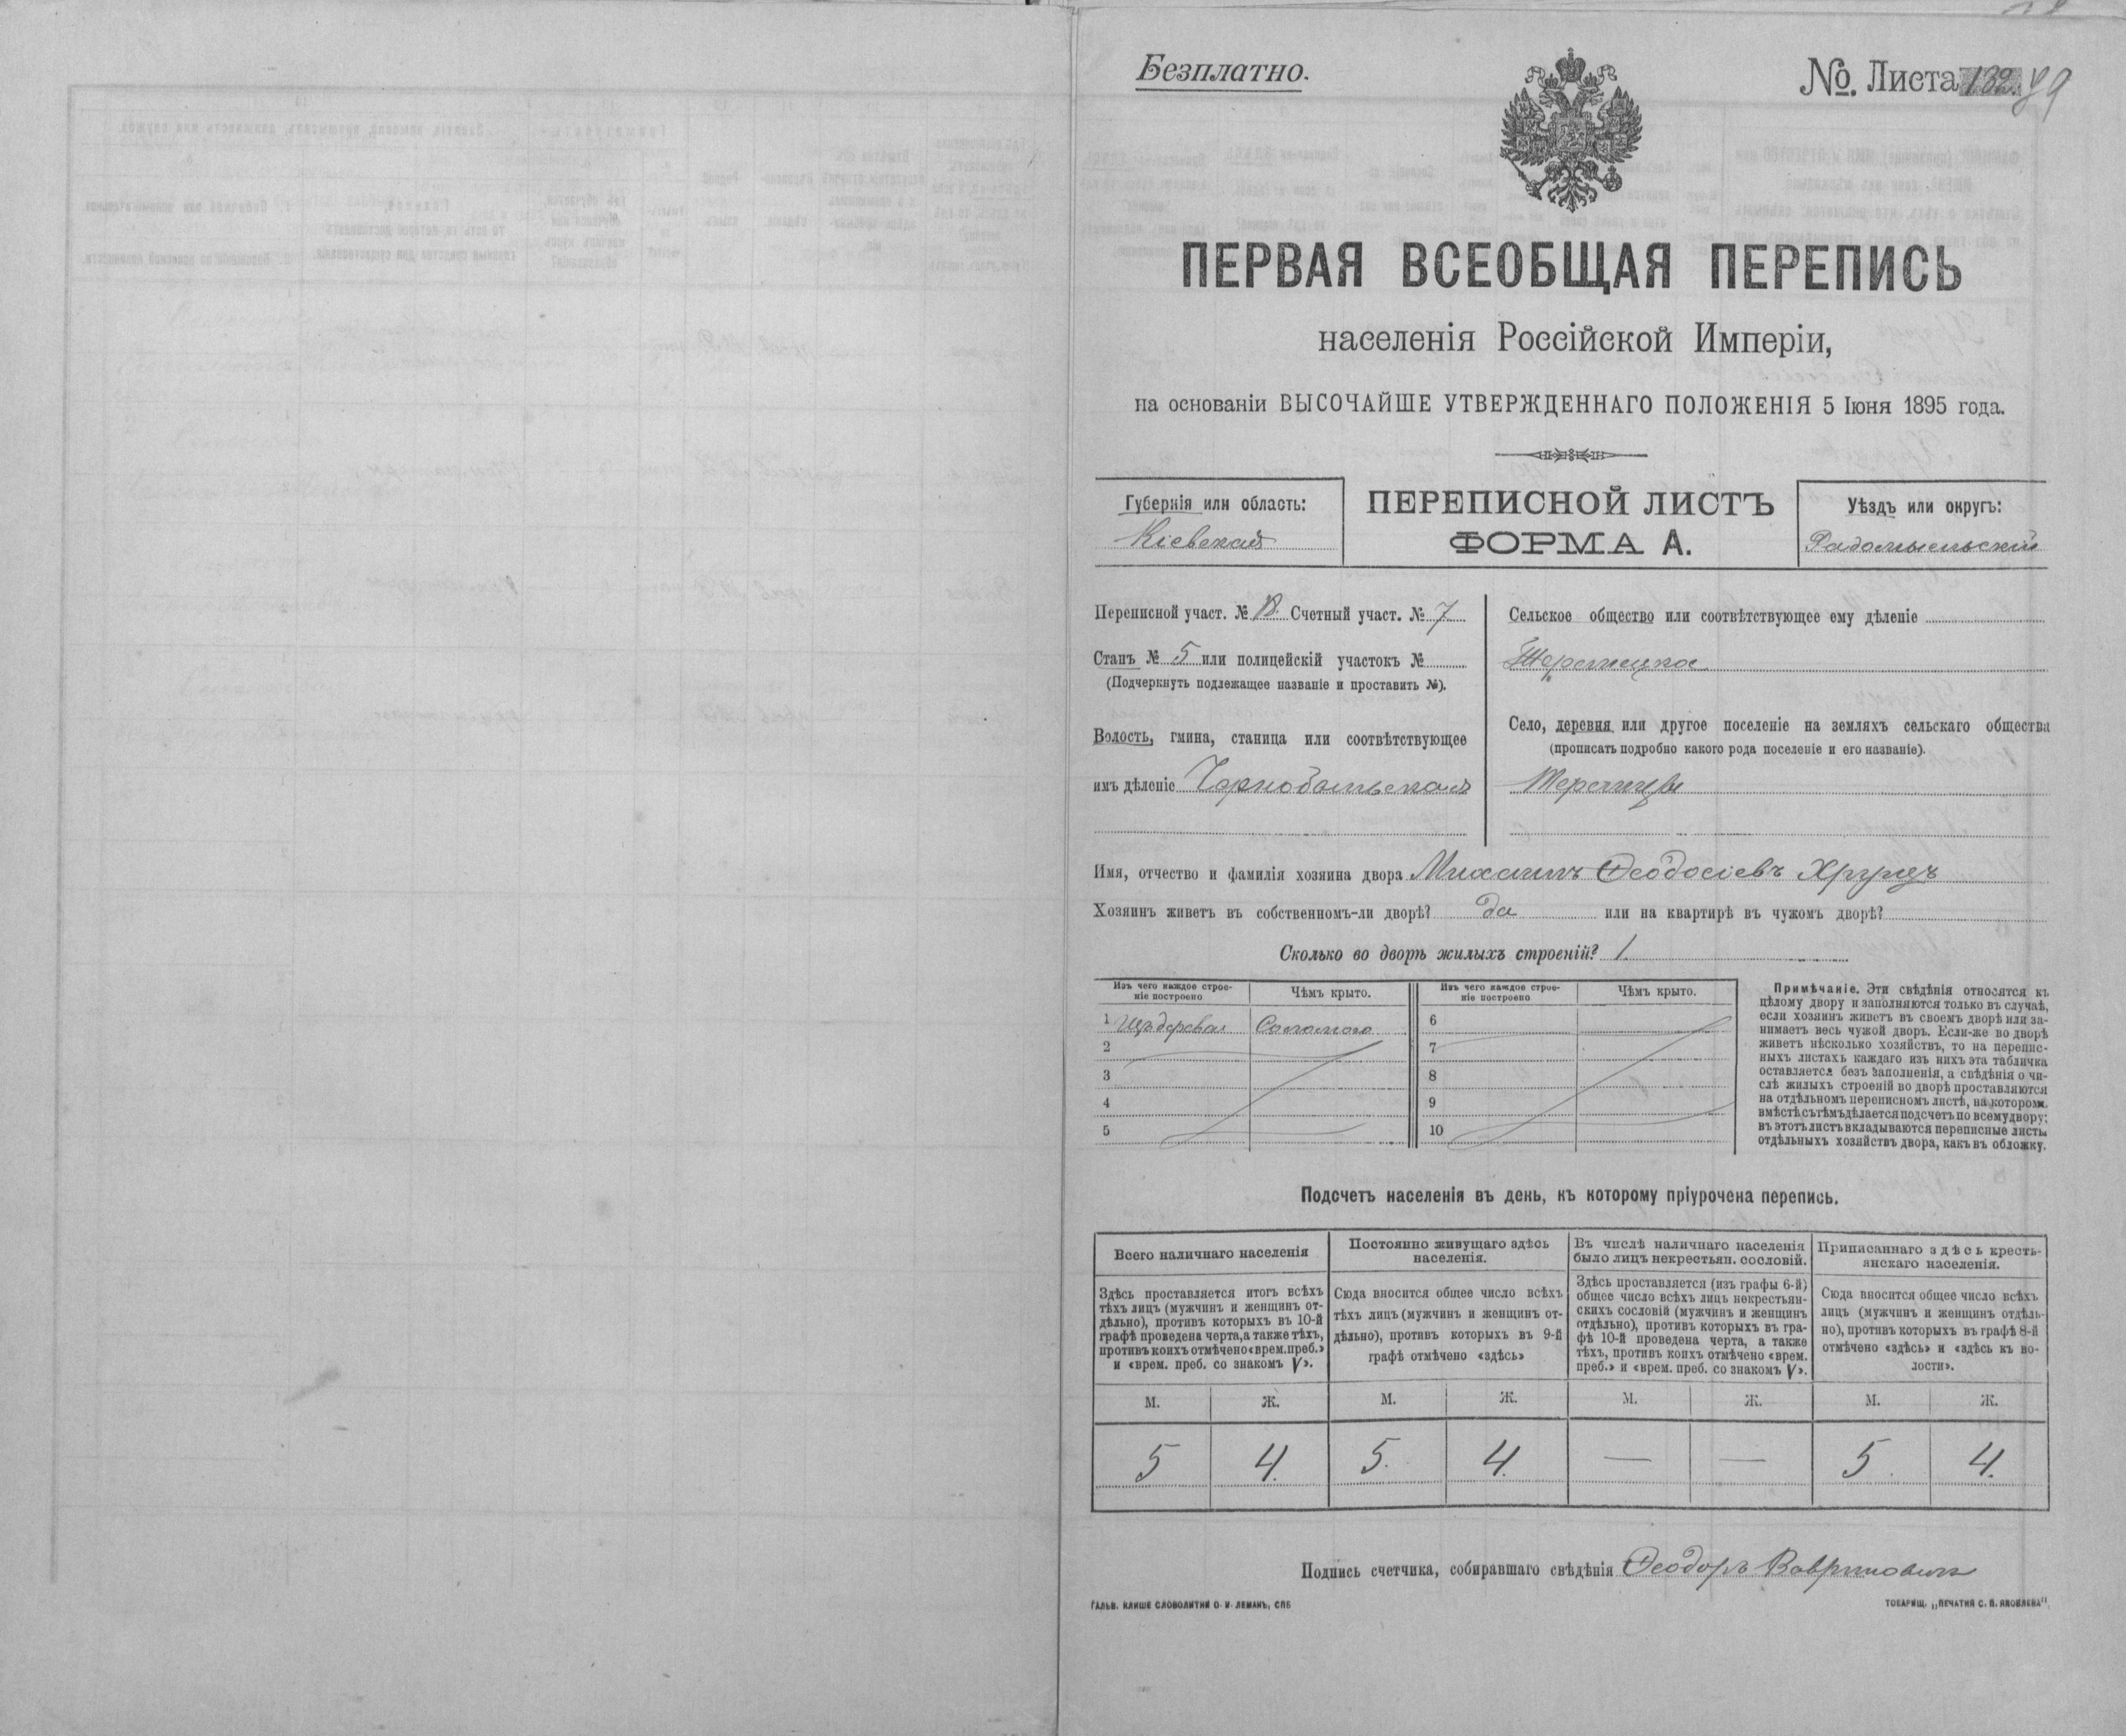 Безплатно.
№. Листа 132. 99
ПЕРВАЯ ВСЕОБЩАЯ ПЕРЕПИСЬ
населенія Россійской Имперіи,
на основаніи ВЫСОЧАЙШЕ УТВЕРЖДЕННАГО ПОЛОЖЕНІЯ 5 Іюня 1895 года.
Губернія или область:
Кіевская
ПЕРЕПИСНОЙ ЛИСТЪ
ФОРМА А.
Уѣздъ или округъ:
Радомысльскій
Переписной участ. № 18. Счетный участ. № 7
Станъ № 5 или полицейскій участокъ №
(Подчеркнуть подлежащее названіе и проставить №).
Волость, гмина, станица или соотвѣтствующее
имъ дѣленіе Чернобыльская
Сельское общество или соотвѣтствующее ему дѣленіе
Село, деревня или другое поселеніе на земляхъ сельскаго общества
(прописать подробно какого рода поселеніе и его названіе).
Имя, отчество и фамилія хозяина двора Михаилъ Ѳеодосіевъ
Хозяинъ живетъ въ собственномъ-ли дворѣ? да или на квартирѣ въ чужомъ дворѣ?
Сколько во дворѣ жилыхъ строеній? 1.
Изъ чего каждое строе-
ніе построено
Чѣмъ крыто.
Изъ чего каждое строе-
ніе построено
Чѣмъ крыто.
1 Изъ дерева Соломою
2
3
4
5
6
7
8
9
10
Примѣчаніе. Эти свѣдѣнія относятся къ
цѣлому двору и заполняются только въ случаѣ,
если хозяинъ живетъ въ своемъ дворѣ или за-
нимаетъ весь чужой дворъ. Если-же во дворѣ
живетъ нѣсколько хозяйствъ, то на перепис-
ныхъ листахъ каждаго изъ нихъ эта табличка
оставляется безъ заполненія, а свѣдѣнія о чи-
слѣ жилыхъ строеній во дворѣ проставляются
на отдѣльномъ переписномъ листѣ, на которомъ
вмѣстѣ съ тѣмъ дѣлается подсчетъ по всему двору;
въ этотъ листъ вкладываются переписные листы
отдѣльныхъ хозяйствъ двора, какъ въ обложку.
Подсчетъ населенія въ день, къ которому пріурочена перепись.
Всего наличнаго населенія
Здѣсь проставляется итогъ всѣхъ
тѣхъ лицъ (мужчинъ и женщинъ от-
дѣльно), противъ которыхъ въ 10-й
графѣ проведена черта, а также тѣхъ,
противъ коихъ отмѣчено «врем. преб.»
и «врем. преб. со знакомъ V».
Постоянно живущаго здѣсь
населенія.
Сюда вносится общее число всѣхъ
тѣхъ лицъ (мужчинъ и женщинъ от-
дѣльно), противъ которыхъ въ 9-й
графѣ отмѣчено «здѣсь»
Въ числѣ наличнаго населенія
было лицъ некрестьян. сословій.
Здѣсь проставляется (изъ графы 6-й)
общее число всѣхъ лицъ некрестьян-
скихъ сословій (мужчинъ и женщинъ
отдѣльно), противъ которыхъ въ гра-
фѣ 10-й проведена черта, а также
тѣхъ, противъ коихъ отмѣчено «врем.
преб.» и «врем. преб. со знакомъ V».
Приписаннаго здѣсь кресть-
янскаго населенія.
Сюда вносится общее число всѣхъ
лицъ (мужчинъ и женщинъ отдѣль-
но), противъ которыхъ въ графѣ 8-й
отмѣчено «здѣсь» и «здѣсь къ во-
лости».
М. Ж. М. Ж. М. Ж. М. Ж.
5 4. 5. 4. — — 5. 4.
Подпись счетчика, собиравшаго свѣдѣнія Ѳеодоръ
ГАЛЬВ. КЛИШЕ СЛОВОЛИТНИ О. И. ЛЕМАНЪ, СПБ
ТОВАРИЩ. „ПЕЧАТНЯ С. П. ЯКОВЛЕВА".